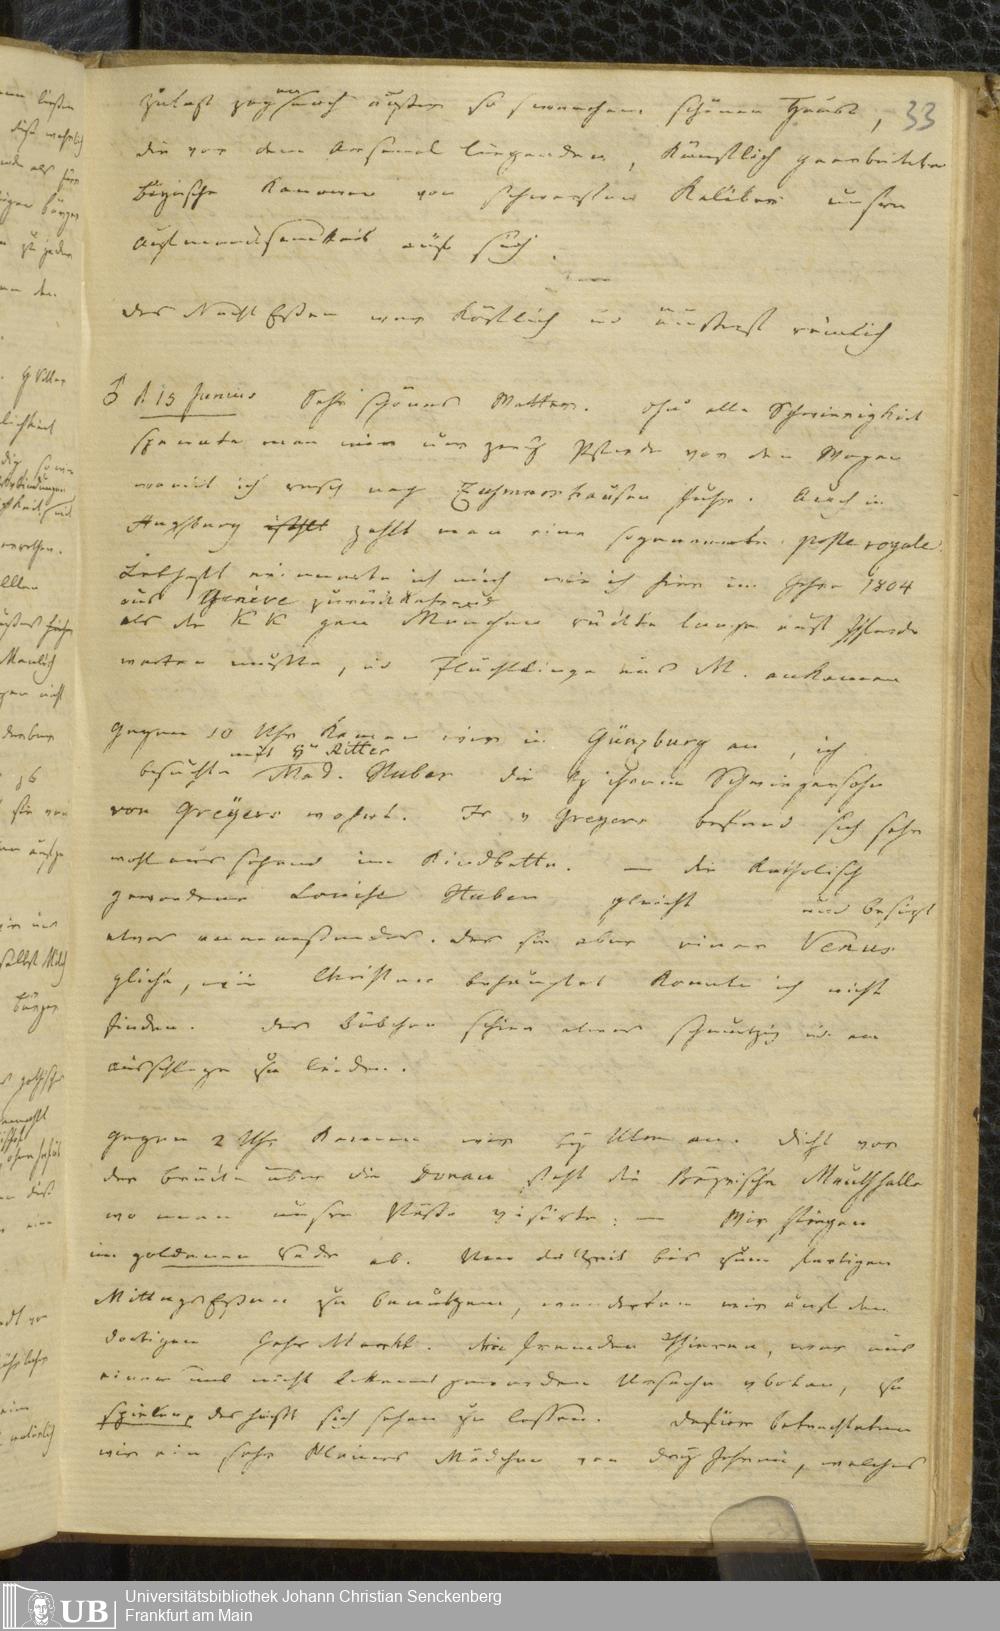 zulezt zogen noch ausser so manchem schönen Hause, 33
die vor dem Arsenal liegenden, künstlich gearbeitete
bayrische Kanonen von schwerstem Kaliber unsre
Aufmerksamkeit auf sich.
das Nacht Essen war köstlich und äusserst reinlich
♂ d. 13 Junius Sehr schönes Wetter. ohne alle Schwierigkeit
spannte man mir nur zwey Pferde vor den Wagen
womit ich rasch nach Zusmarshausen fuhr. Auch in
Augsburg zahlt man eine sogenannte poste royale.
Lebhaft erinnerte ich mich wie ich hier im Jahre 1804
aus Genève zurückkehrend
als die KK gen München rückte lange auf Pferde
warten musste, und Flüchtlinge aus M. ankamen
Gegen 10 Uhr kamen wir in Günzburg an, ich
mit Hn Ritter
besuchte Mad. Huber die bey ihrem Schwiegersohn
von Greyers wohnt. Fr v Greyers befand sich sehr
wohl aussehend im Kindbette. — die katholisch
gewordene Louise Huber gleicht und besizt
etwas anmassendes. das sie aber einer Venus
gliche, wie Christner behauptet konnte ich nicht
finden. das Bübchen schien etwas schmutzig und an
ausschlage zu leiden.
Gegen 2 Uhr kamen wir bey Ulm an. dicht vor
der Brücke über die Donau steht die Bayrische Mauthhalle
wo man unsre Pässe visirte; — Wir stiegen
im goldenen Rade ab. Um die Zeit bis zum fertigen
MittagsEssen zu benützen, wanderten wir auf den
dortigen JahrMarkt. den fremden Thieren, war aus
einer uns nicht bekannt gewordenen Ursache verboten, zu
spielen, das heisst sich sehen zu lassen. dafür betrachteten
wir ein sehr kleines Mädchen von drey Jahren, welches
Universitätsbibliothek Johann Christian Senckenberg
UB Frankfurt am Main